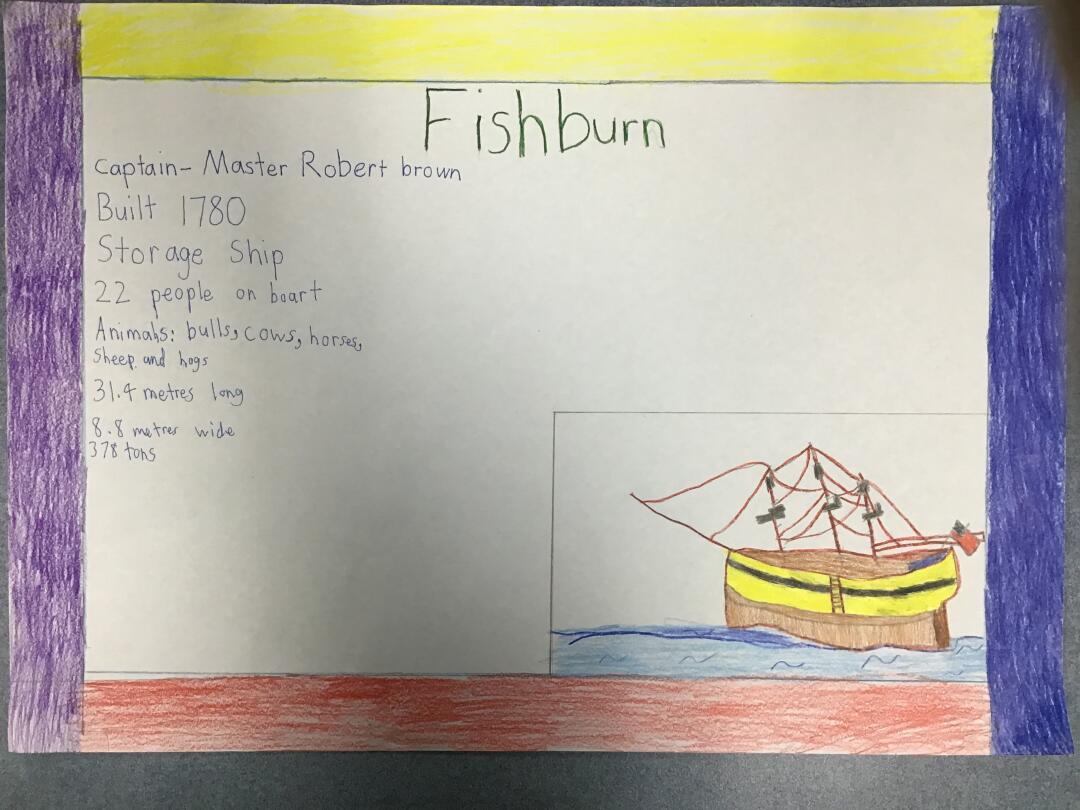 Fishburn
Captain- Master Robert brown
Built 1780
Storage Ship
22 people on boart
Animals: bulls, cows, horses,
Sheep and hogs
31.4 metres long
8.8 metres wide
378 tons